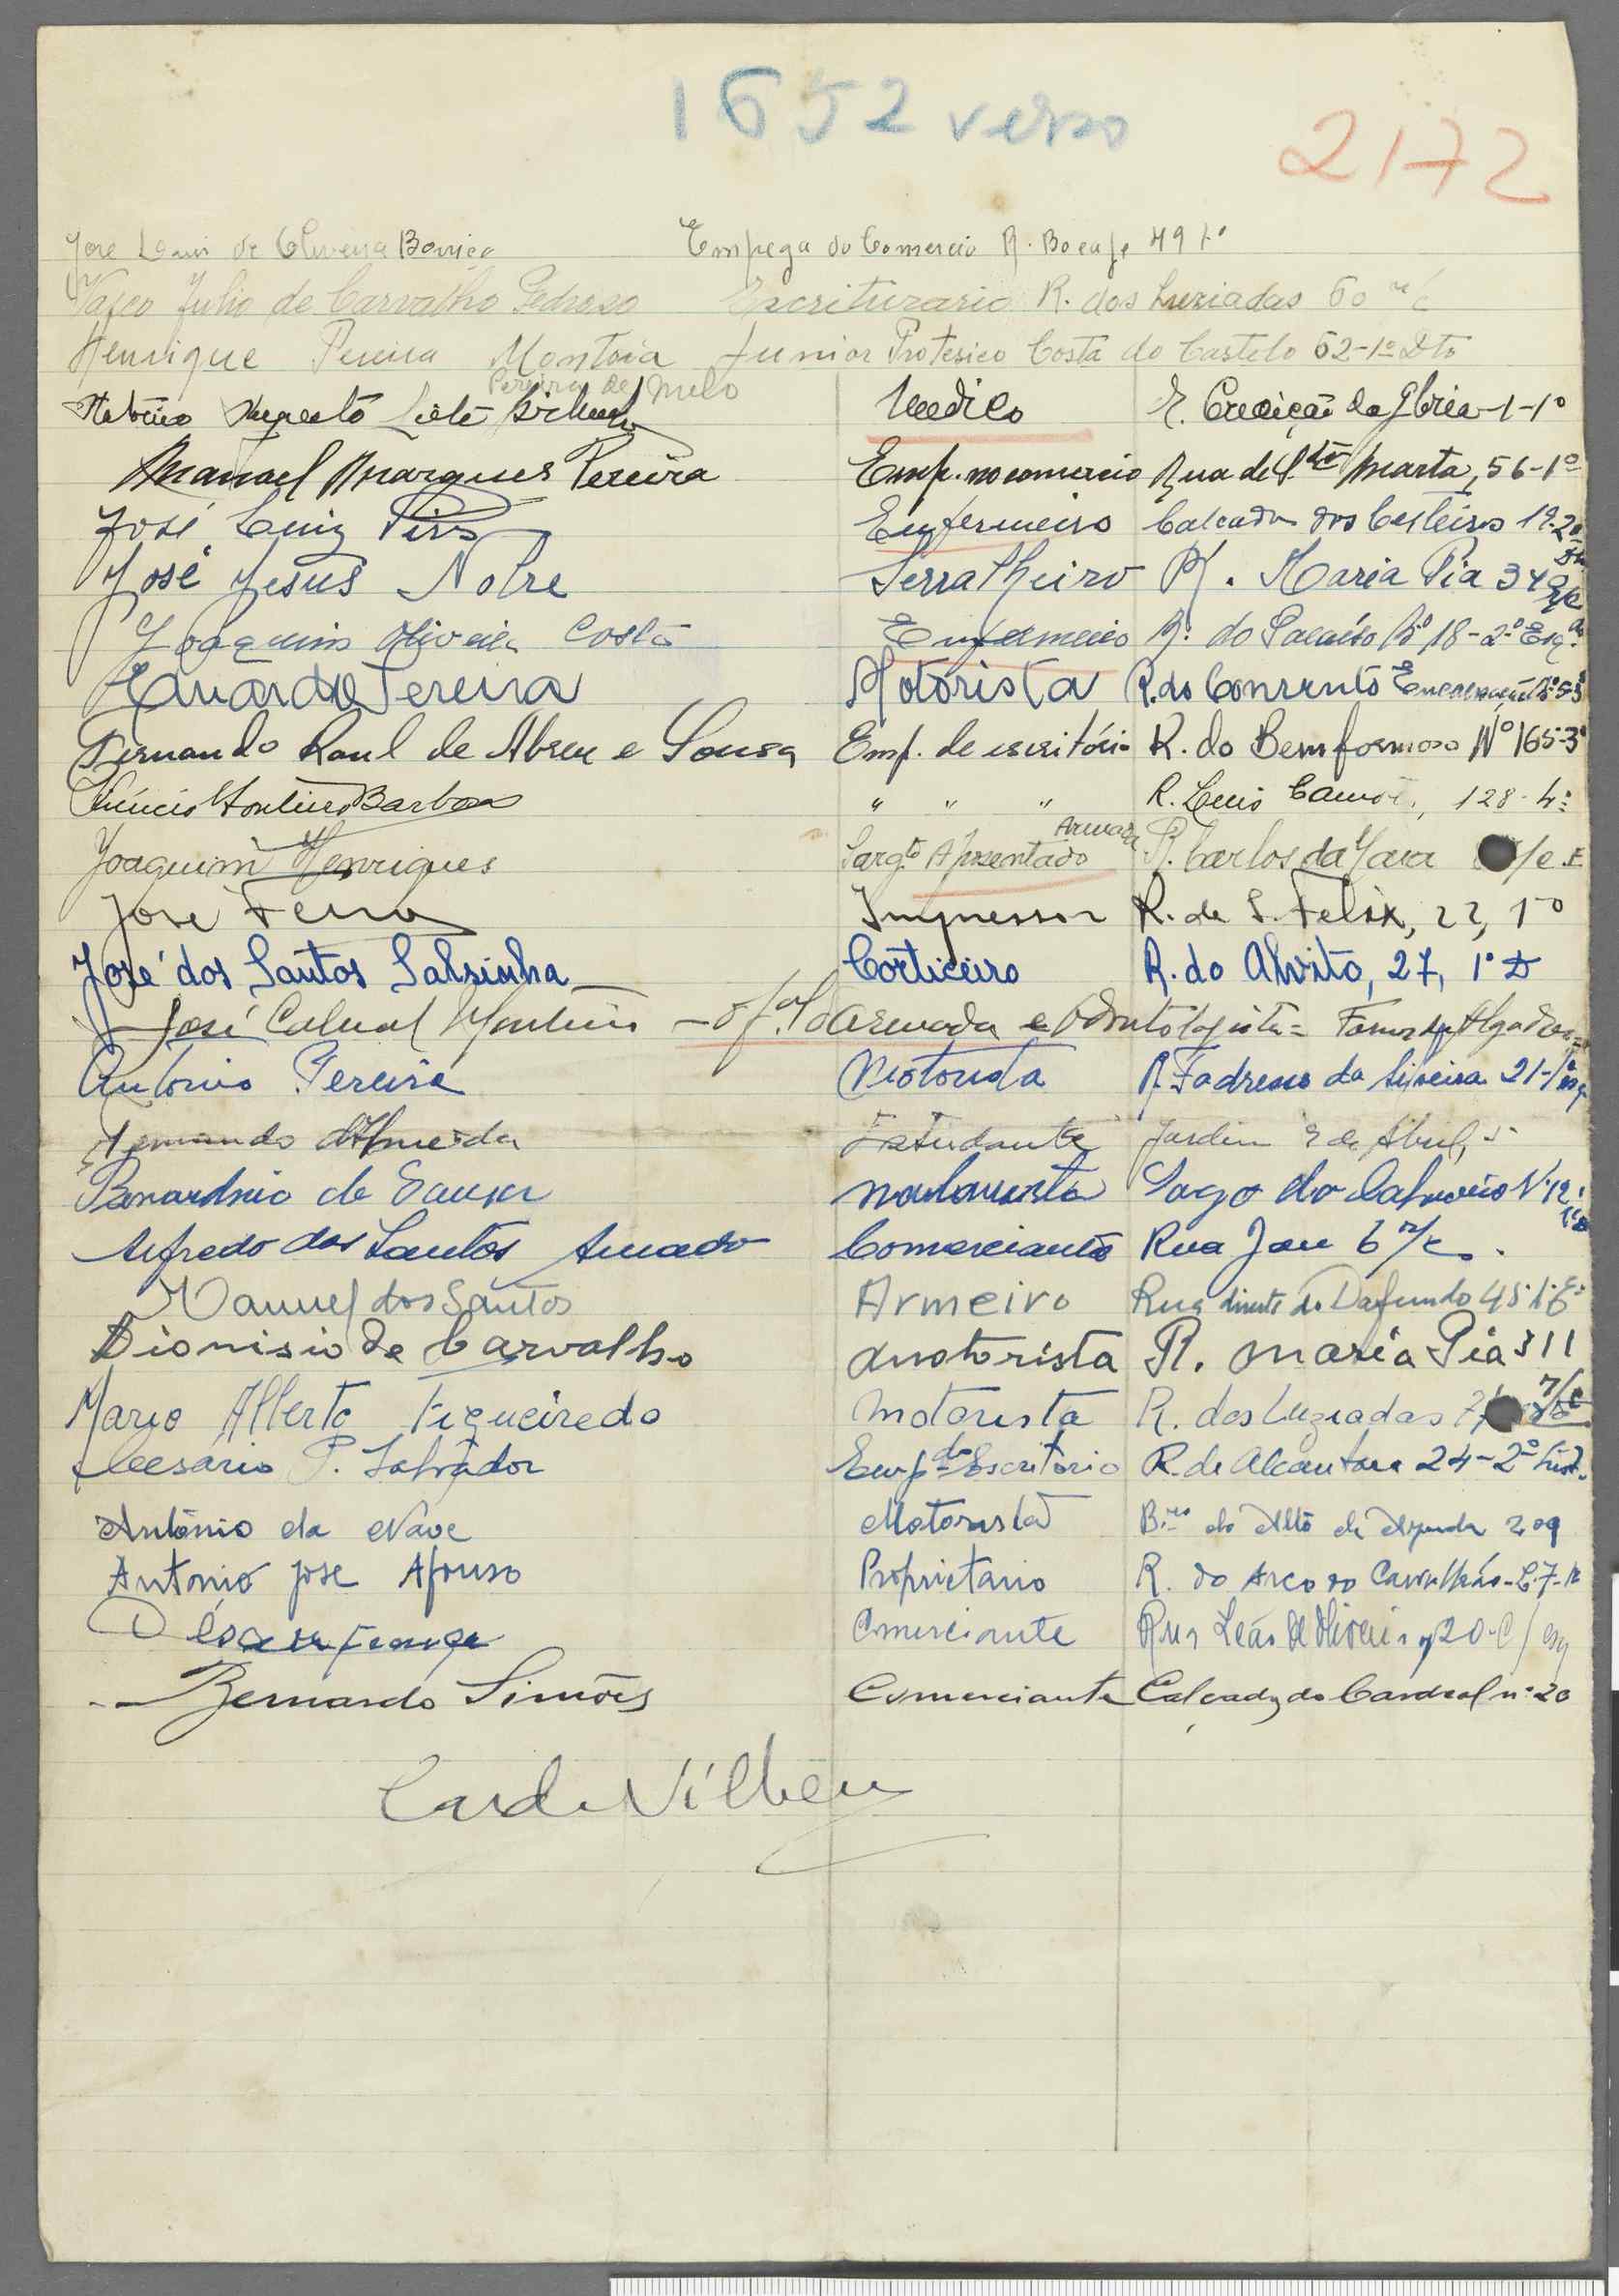 1652 verso
2172
Jose de Oliveira Empega do Comercio R. Bocage 49 1º
Vasco Julio de Carvalho Pedroso Escriturario R. dos Luziadas 60 r/c
Henrique Pereira Montoia Junior Protesico Costa do Castelo 52-1º Dto
Pereira de Melo
Augusto Leite Medico Glória-1-1º
Manael Marques Pereira Emp. no comercio Rua de S.ta Marta, 56-1º
José Luiz Pires Enfermeiro Calcada dos Cesteiros 19-2º
José Jesus Nobre Serralheiro R. Maria Pia 349 r/c
Joaquim Oliveira Costa Enfermeiro R. do Nº 18-2º Esq.
Eduardo Pereira Motorista R. do Convento Encarnação
Fernando Raul de Abreu e Sousa Emp. de escritório R. do Bemformoso Nº 165-3º
Monteiro Barbosa " " " R. Luis Camões, 128-4º
Armada
Joaquim Henriques Sarg.to Aposentado R. Carlos da Maia /c E
Jose Ferra Impressor R. de S. Felix, 22, 1º
José dos Santos Salsinha Corticeiro R. do Alvito, 27, 1º D
José Cabral Monteiro - of.al d'armada e Odontologista =
Antonio Pereira Motorista R. Fradresso da Silveira 21-1º esq
Fernando d'Almeida Estudante Jardim 9 de Abril, 5
Bernardino de Sousa Lago do Calvario Nº 12
Alfredo dos Santos Amado Comerciante Rua Jau 6 r/c.
Manuel dos Santos Armeiro Rua direita do Dafundo 45-1º E
Dionisio de Carvalho Motorista R. Maria Pia 311
Mario Alberto Figueiredo Motorista R. dos Luziadas r/c
Cesário P. Salvador Emp.do Escritorio R. de Alcantara 24-2º
António da Nave Motorista B.rro do Alto da Ajuda 209
Antonio Jose Afonso Proprietario R. do Arco do Carvalhão
Comerciante Rua Leão de Oliveira 20-C/esq
Bernardo Simões Comerciante Calçada do Cardeal nº 20